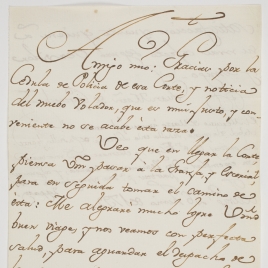 Amigo mio: Gracias por la
Cedula de Policia de esa Corte, y noticia
del nuebo Volador, que es mui justo, y con-
veniente no se acabe esta raza.
Veo que en llegar la Corte
piensa Vm pasar à la Granja, y Escorial,
para en seguida tomar el camino de
esta: Me alegraré mucho logre Vm
buen viage, y nos veamos con perfecta
salud, para aguardar el despacho de